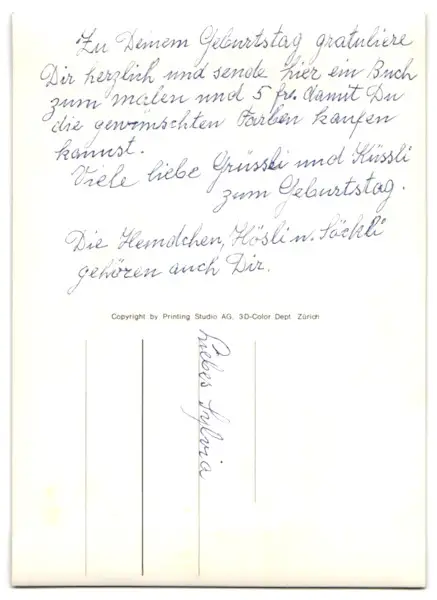 Zu Deinem Geburtstag gratuliere
Dir herzlich und sende hier ein Buch
zum malen und 5 frs. damit Du
die gewünschten Farben kaufen
kannst.
Viele liebe Grüssli und Küssli
zum Geburtstag.
Die Hemdchen, Hösli u. Söckli
gehören auch Dir.
Copyright by Printing Studio AG, 3D-Color Dept. Zürich
Liebes Sylvia